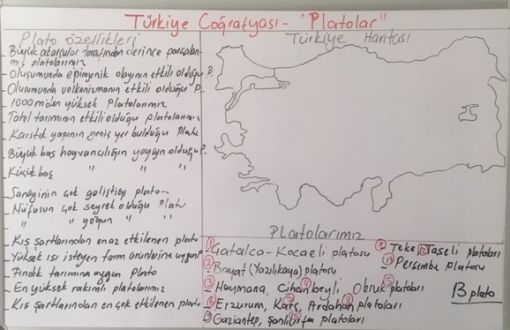 Türkiye Coğrafyası - "Platolar"
Plato özellikleri
Türkiye Haritası
Büyük akarsular tarafından derince parçalan-
mış platolarımız
- Oluşumunda epirojenik olayının etkili olduğu P.
- Oluşumunda volkanizmanın etkili olduğu P.
- 1000 m'den yüksek Platolarımız
Tahıl tarımının etkili olduğu platolarımız
- Karstik yapının geniş yer bulduğu Plato
Büyük baş hayvancılığın yaygın olduğu P.
Küçük baş " " "
- Sanayinin çok geliştiği plato -
- Nüfusun çok seyrek olduğu Plato
" yoğun " "
- Kış şartlarından en az etkilenen plato
- Yüksek ısı isteyen tarım ürünlerine uygun P
- Fındık tarımına uygun Plato
- En yüksek rakımlı platolarımız
- Kış şartlarından en çok etkilenen plato
Platolarımız
Çatalca - Kocaeli platosu
Bayat (Yazılıkaya) platosu
Haymana, Cihanbeyli, Obruk platoları
Erzurum, Kars, Ardahan platoları
Gaziantep, Şanlıurfa platoları
Teke, Taşeli platoları
Perşembe platosu
13 plato